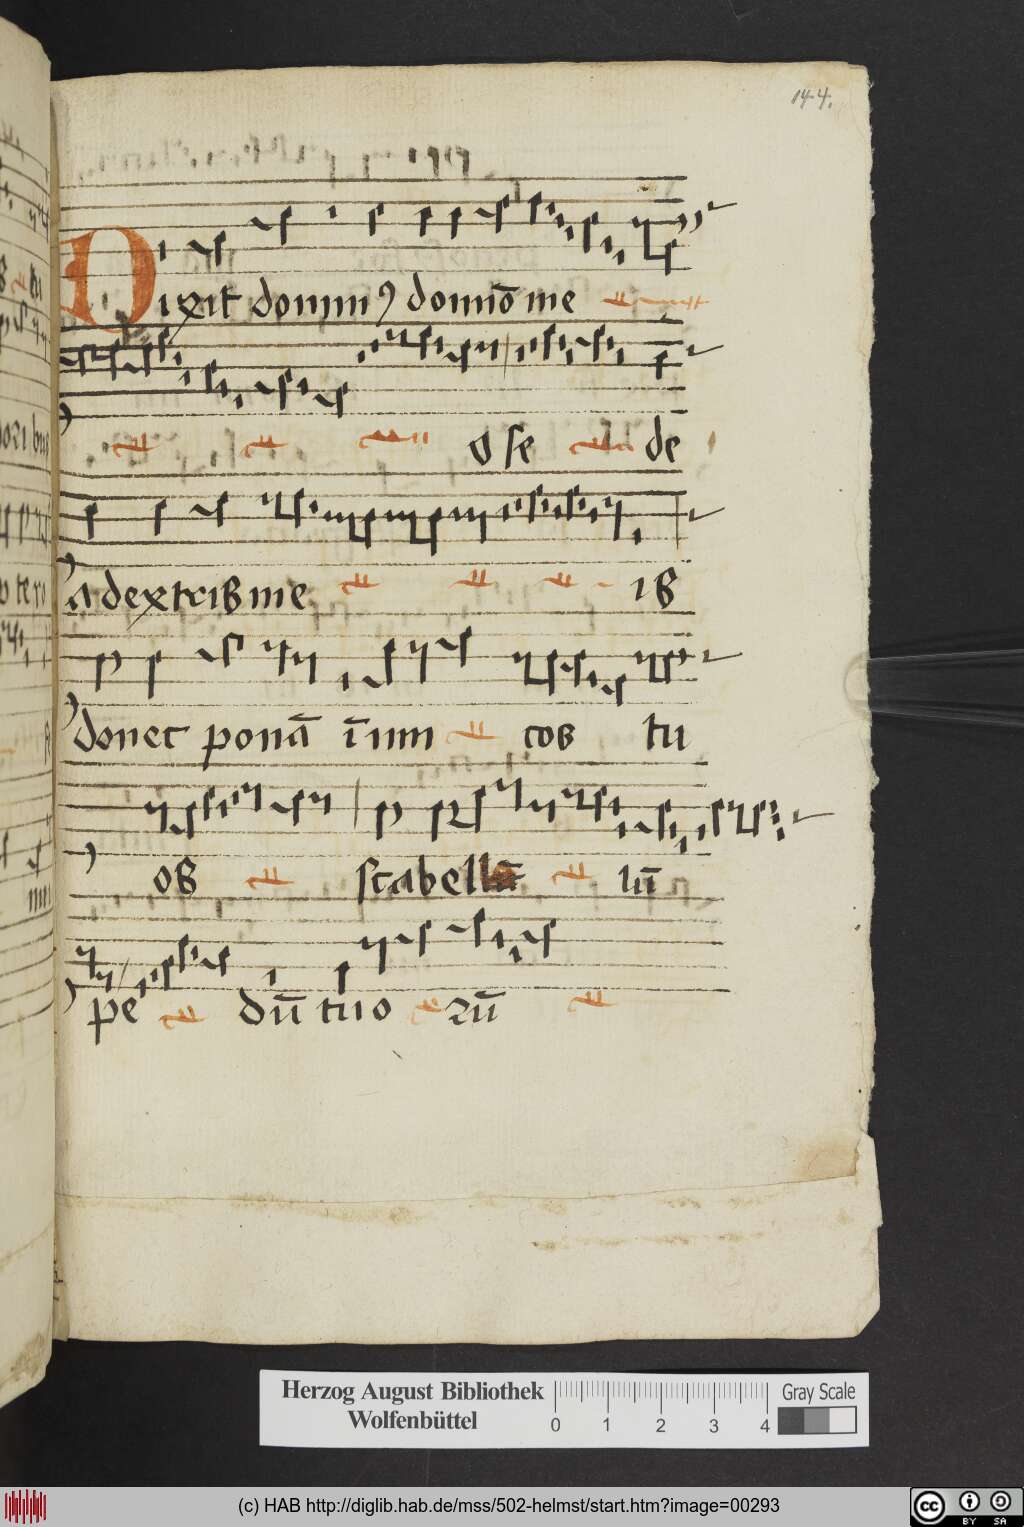 144.
Dixit domin9 domīo me
o se de
a dextrib me ib
donec ponā īim cos tu
os scabellū lū
pe dū tuo rū
Herzog August Bibliothek
Wolfenbüttel
0 1 2 3 4
Gray Scale
(c) HAB http://diglib.hab.de/mss/502-helmst/start.htm?image=00293
cc BY SA